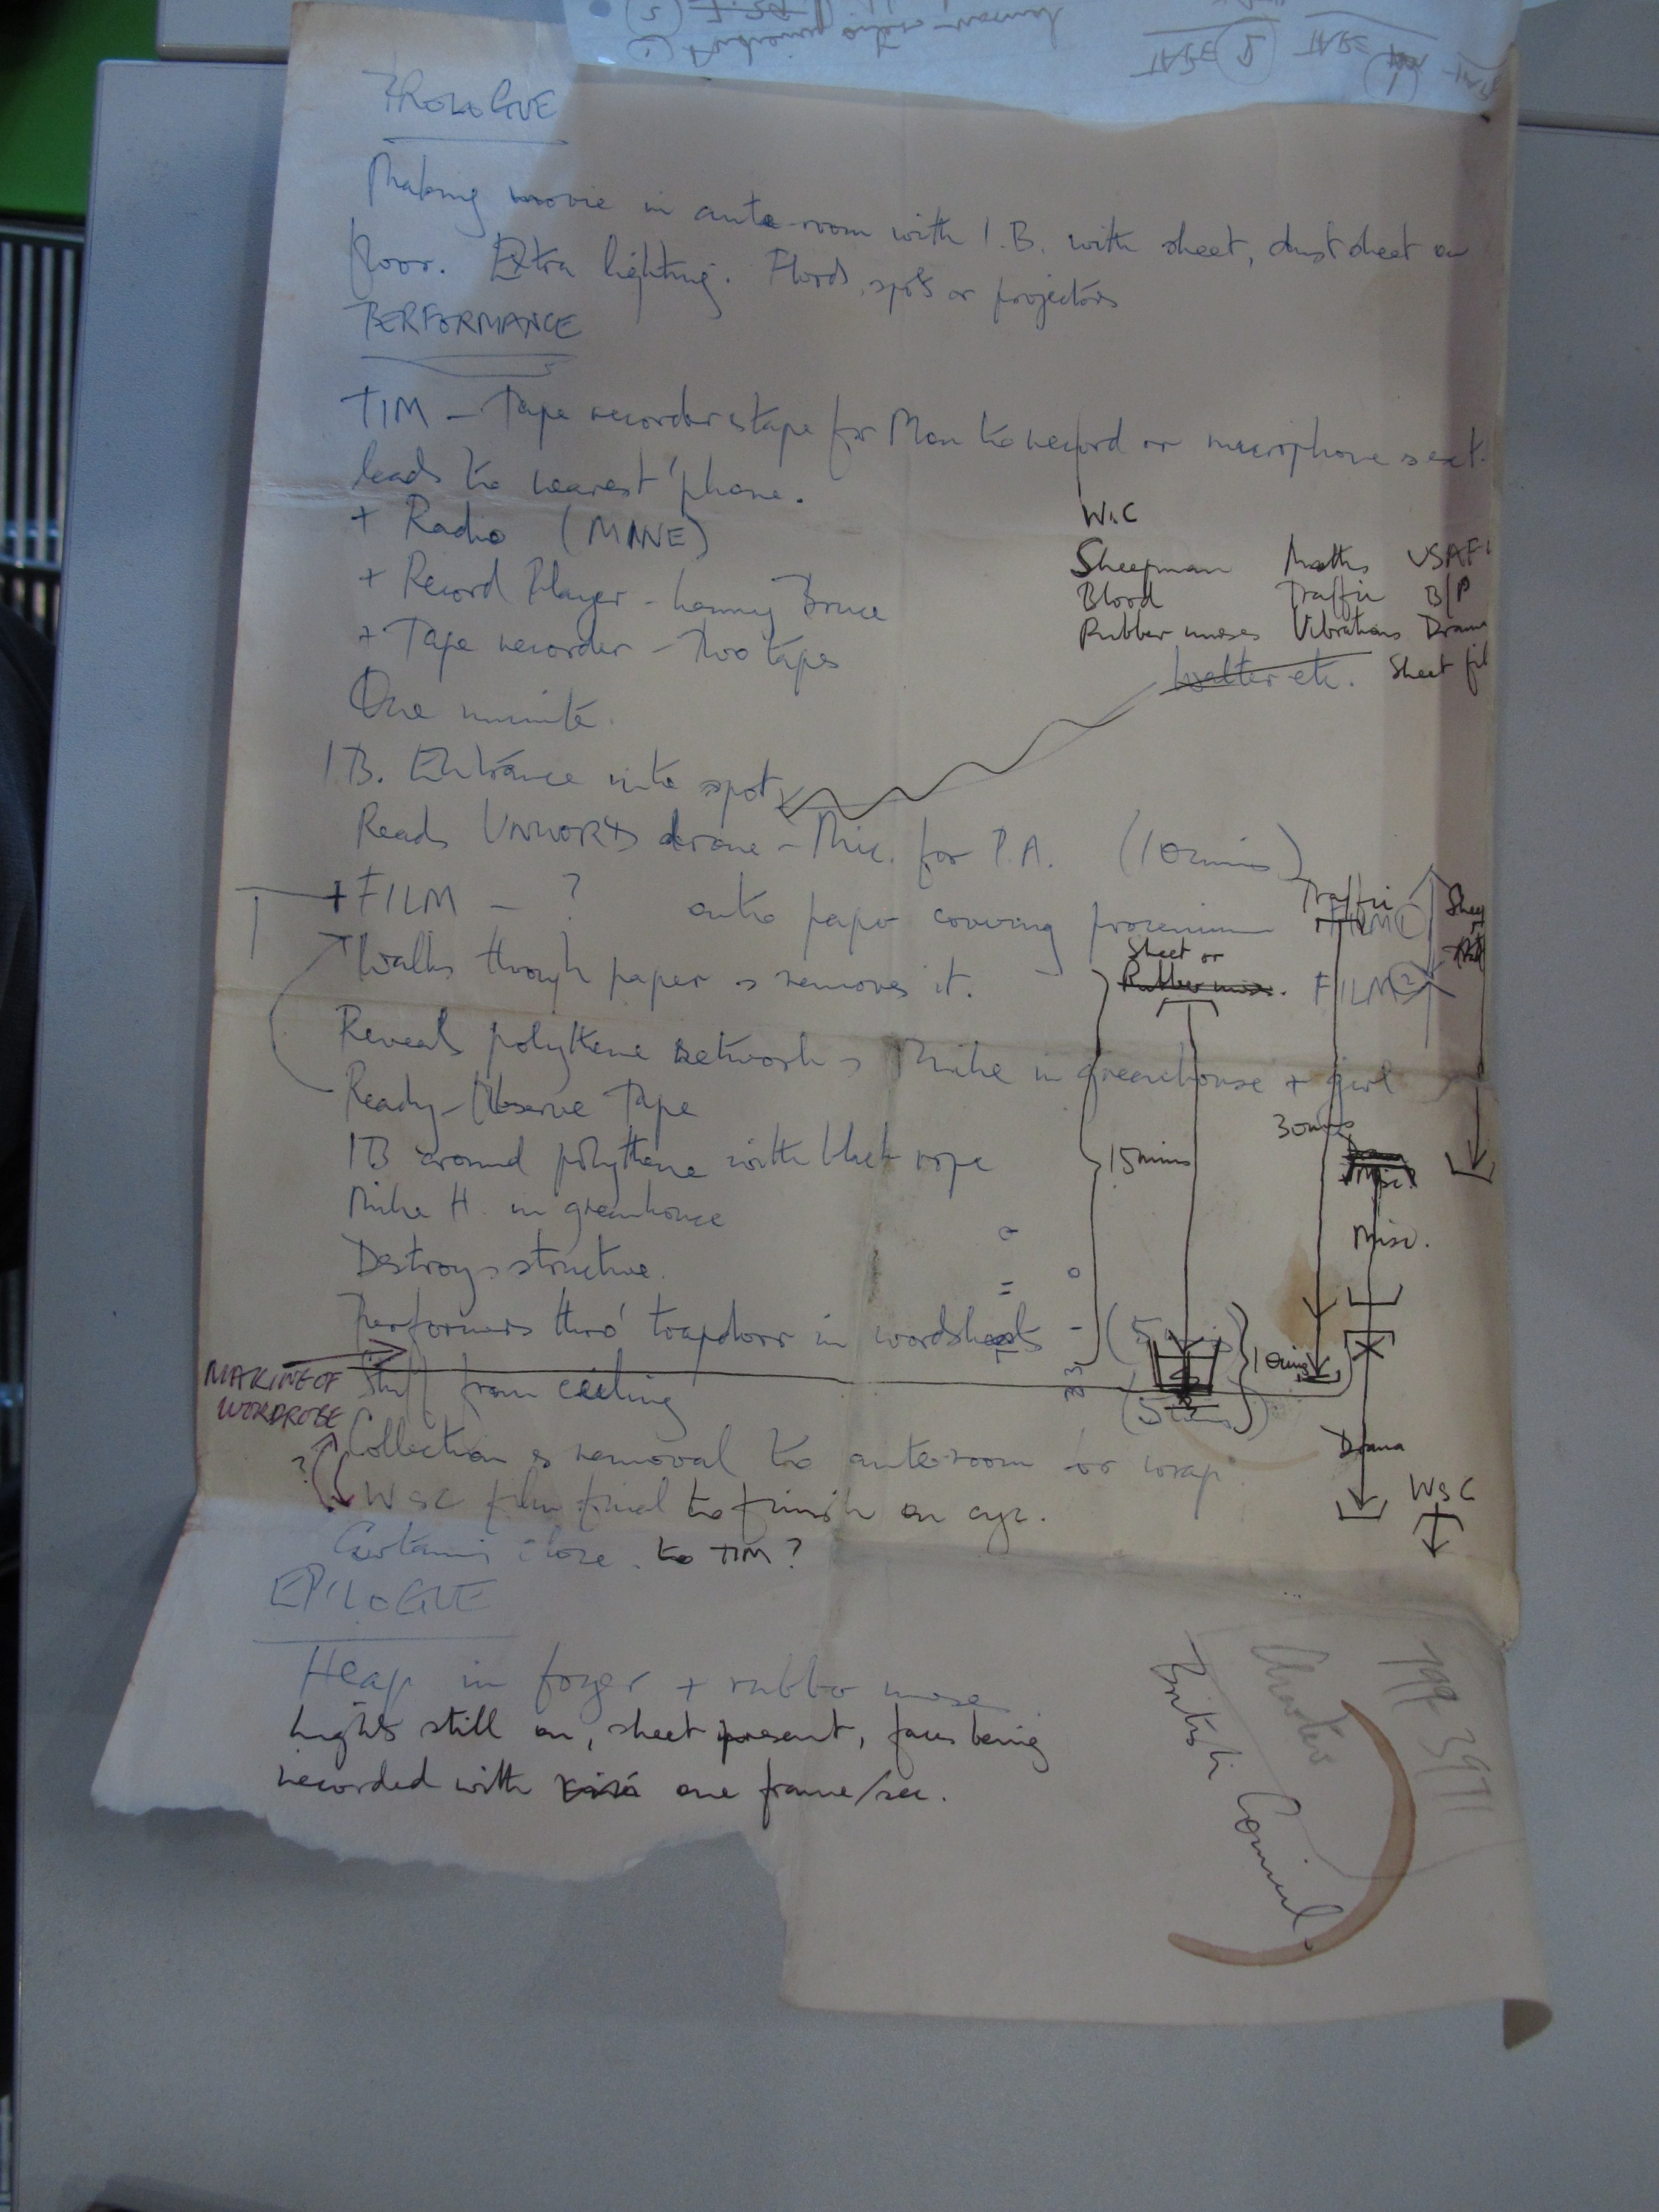 PROLOGUE
Making movie in ante-room with I.B. with sheet, dust sheet on
floor. Extra lighting. Floods, spots or projectors
PERFORMANCE
TIM - Tape recorder & tape for Man to record or microphone & ext.
leads to nearest 'phone.
+ Radio (MINE)
+ Record Player - Lenny Bruce
+ Tape recorder - Two tapes
One minute.
W.C
Sheepman Maths USAF
Blood Traffic B/P
Rubber noses Vibrations Drama
Walter etc. Sheet fil
I.B. Entrance into spot
Reads UNWORDS drone - Mic. for P.A. (10 mins)
+ FILM - ? onto paper covering proscenium
Traffic
FILM 1
Walks through paper & removes it.
Sheet or
Rubber noses.
FILM 2
Reveals polythene network & Mike in greenhouse + girl
Ready - Observe Tape
IB around polythene with black rope
15 mins
30 mins
Misc.
Mike H. in greenhouse
Misc.
Destroys structure.
Performers thro' trapdoor in wordsheets
MAKING OF
WORDROBE
Stuff from ceiling
10 mins
Collection & removal to ante-room or wrap
Drama
? W & C film final to finish on cyc.
W & C
Curtains close. to TIM?
EPILOGUE
Heap in foyer + rubber nose
Lights still on, sheet present, faces being
recorded with one frame/sec.
British Council
Charles